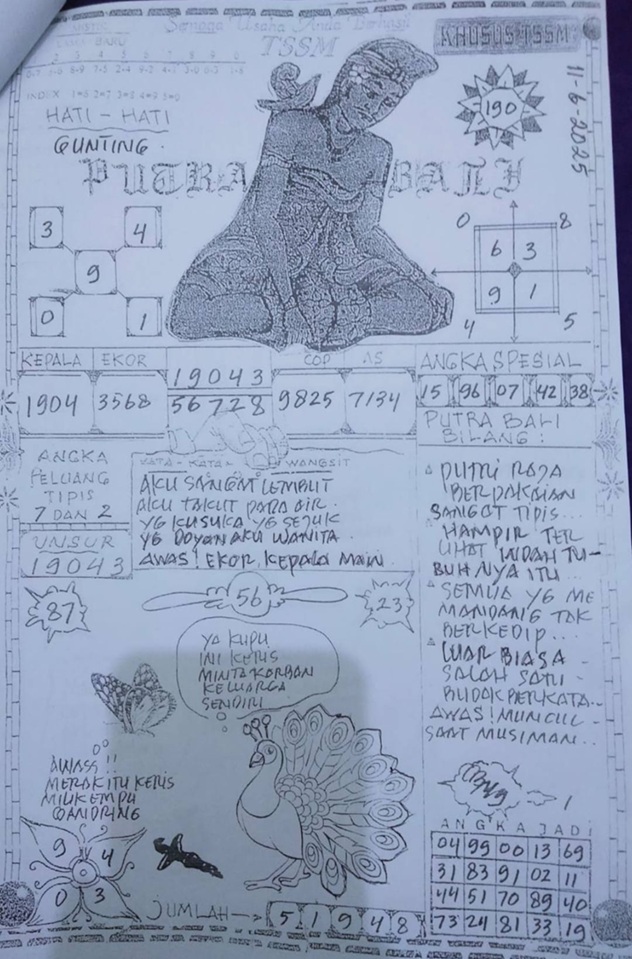 Semoga Usaha Anda Berhasil
TSSM
KHUSUS TSSM
BARU
INDEX
HATI - HATI
GUNTING.
190
11-6-2025
PUTRA BALI
3 4
9
0 1
0 8
6 3
9 1
4 5
KEPALA EKOR COP AS
1904 3568 19043 9825 7134
56728
ANGKA SPESIAL
15 96 07 42 38
PUTRA BALI
BILANG :
PUTRI RAJA
BERPAKAIAN
SANGAT TIPIS...
HAMPIR TER
LIHAT INDAH TU-
BUHNYA ITU...
SEMUA YG ME
MANDANG TAK
BERKEDIP...
LUAR BIASA -
SALAH SATU -
BUDAK BERKATA..
AWAS! MUNCUL -
SAAT MUSIMAN..
ANGKA
PELUANG
TIPIS
7 DAN 2
UNSUR
19043
KATA - KATA WANGSIT
AKU SANGAT LEMBUT
AKU TAKUT PADA AIR.
YG KUSUKA YG SEJUK
YG DOYAN AKU WANITA.
AWAS! EKOR, KEPALA MAIN
87
56
23
YA KUPU
INI KERIS
MINTA KORBAN
KELUARGA
SENDIRI
AWASS!!
MERAK ITU KERIS
MILIK EMPU
GANDRING
9 4
0 3
JUMLAH → 5 1 9 4 8
ANGKA JADI
04 99 00 13 69
31 83 91 02 11
44 51 70 89 40
73 24 81 33 19